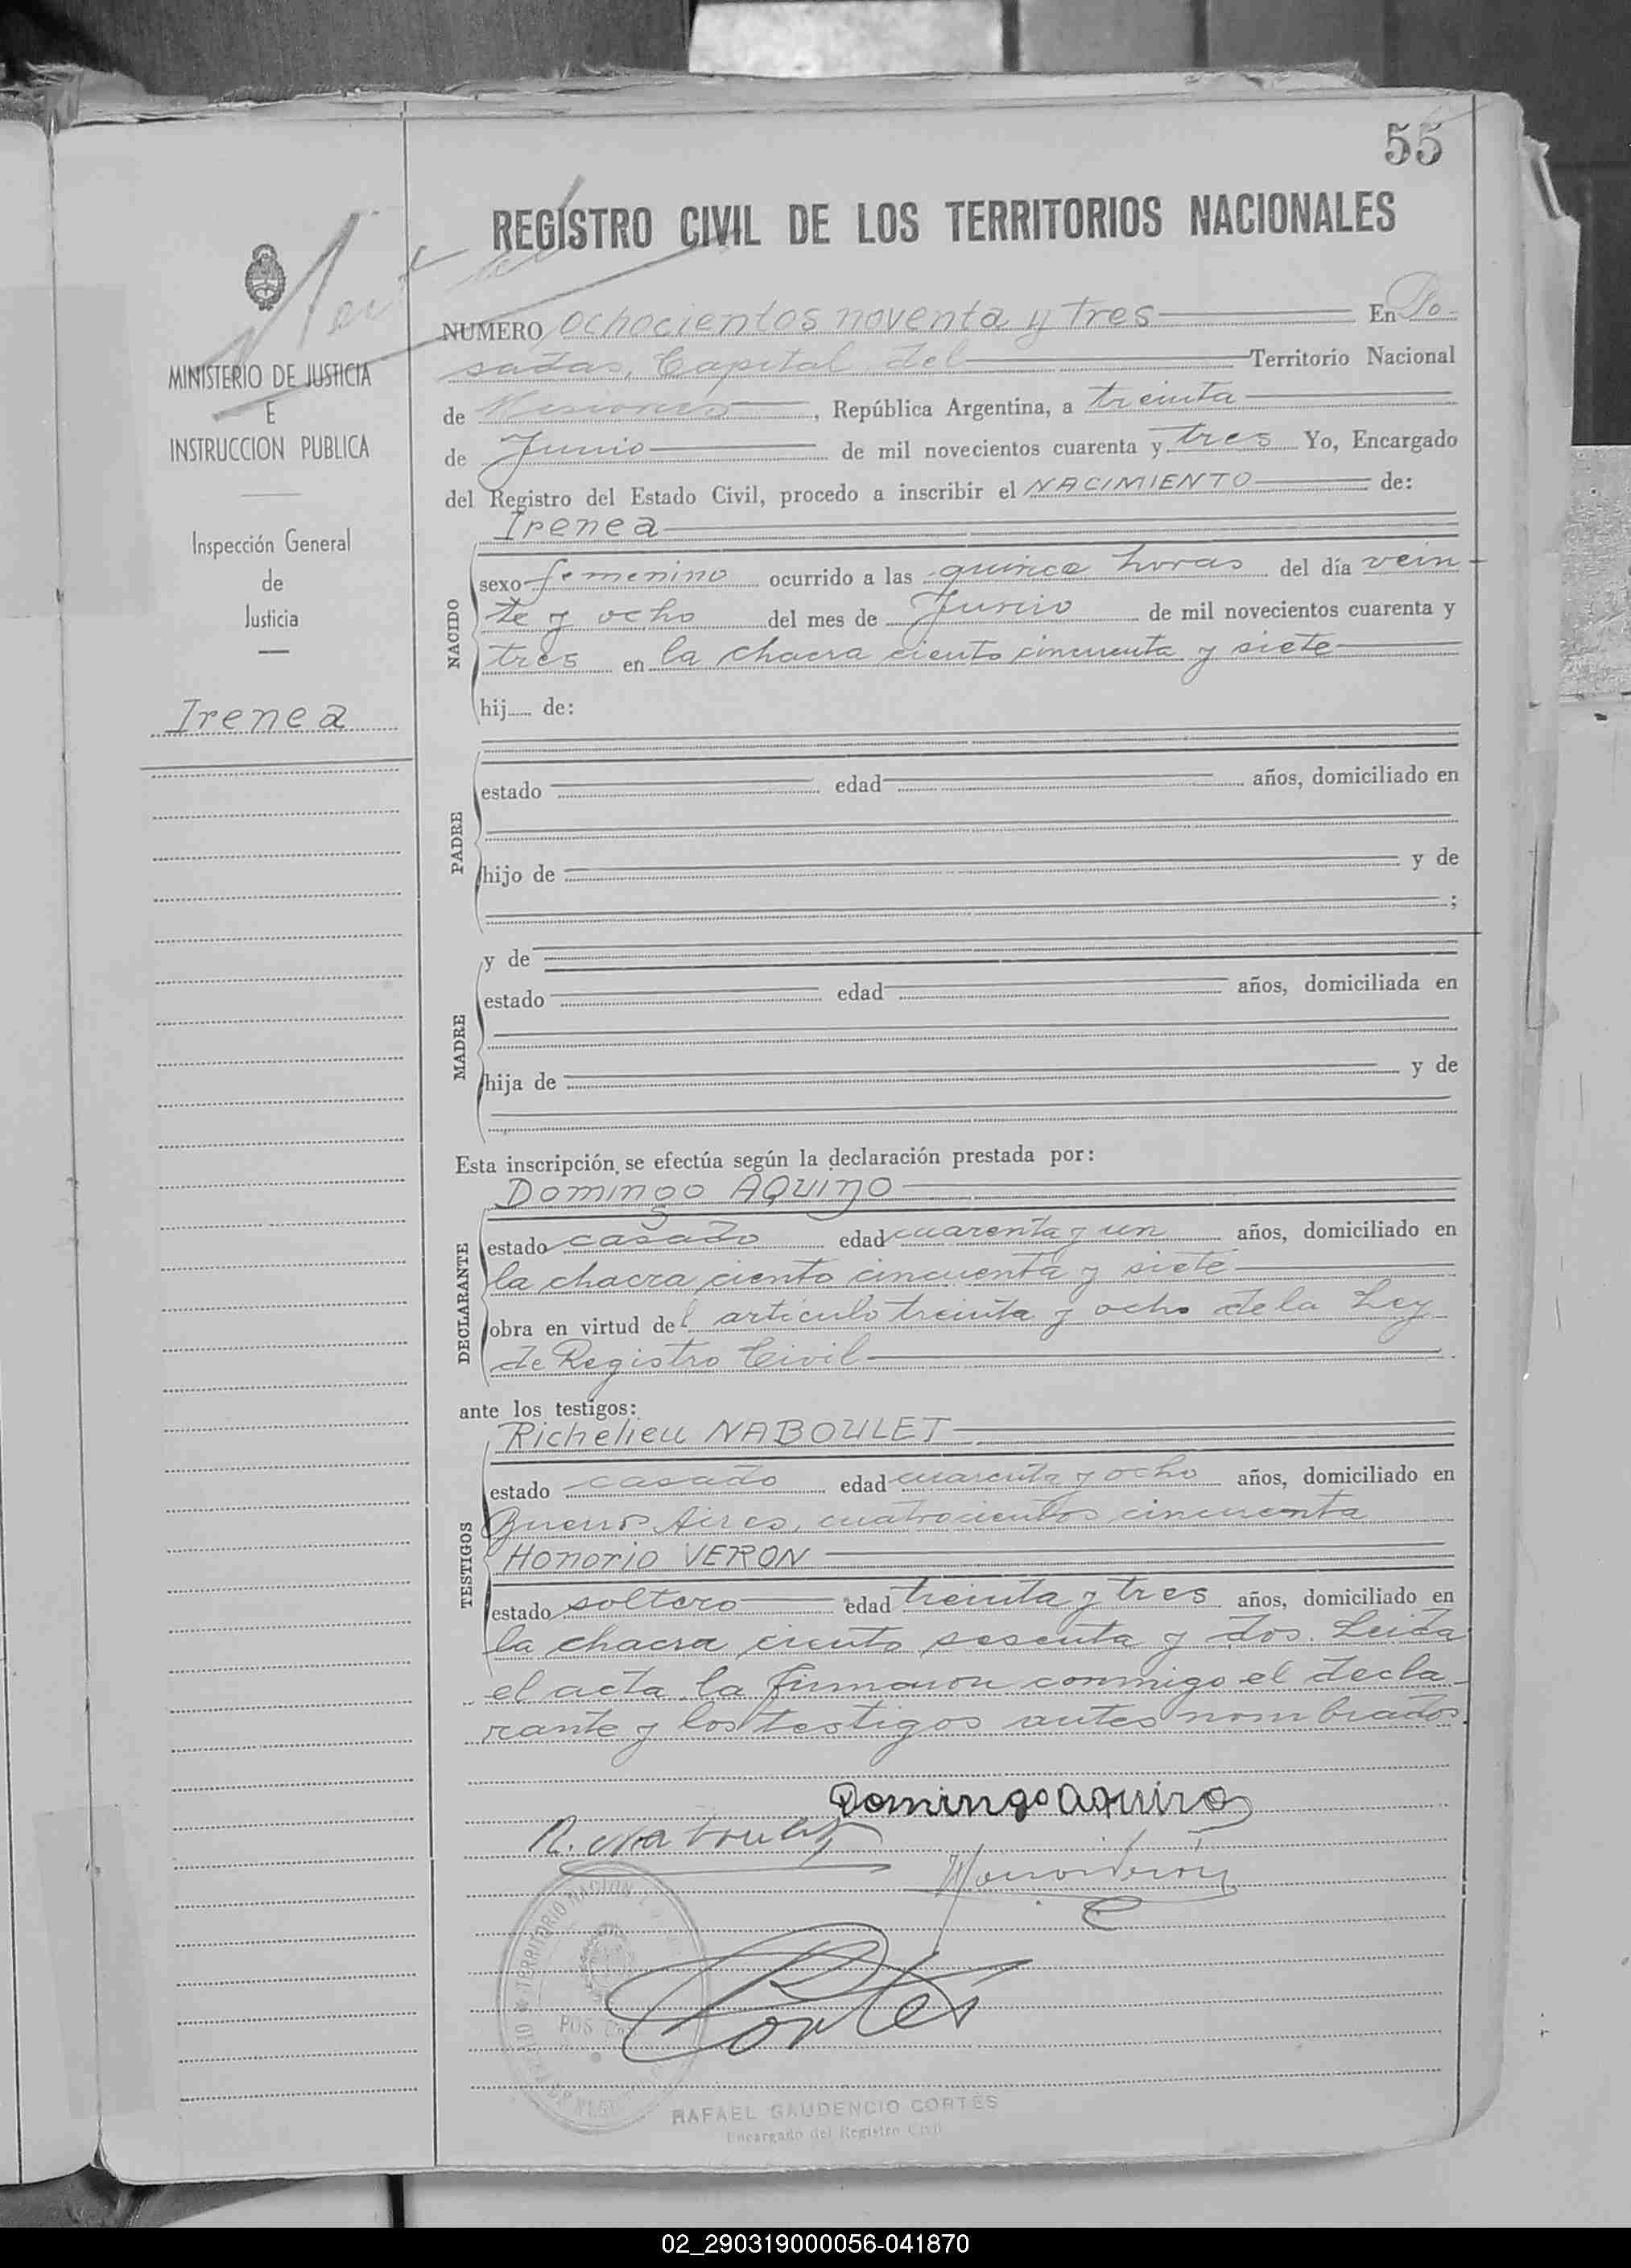 55
REGISTRO CIVIL DE LOS TERRITORIOS NACIONALES
MINISTERIO DE JUSTICIA
E
INSTRUCCION PUBLICA
Inspección General
de
Justicia
Irenea
NUMERO ochocientos noventa y tres En Po-
sadas, Capital del Territorio Nacional
de Misiones, República Argentina, a treinta
de Junio de mil novecientos cuarenta y tres Yo, Encargado
del Registro del Estado Civil, procedo a inscribir el NACIMIENTO de:
NACIDO
Irenea
sexo femenino ocurrido a las quince horas del día vein-
te y ocho del mes de Junio de mil novecientos cuarenta y
tres en la chacra ciento cincuenta y siete
hij...... de:
PADRE
estado edad años, domiciliado en
hijo de y de
;
MADRE
y de
estado edad años, domiciliada en
hija de y de
Esta inscripción se efectúa según la declaración prestada por:
DECLARANTE
Domingo AQUINO
estado casado edad cuarenta y un años, domiciliado en
la chacra ciento cincuenta y siete
obra en virtud del articulo treinta y ocho de la Ley
de Registro Civil
ante los testigos:
TESTIGOS
Richelieu NABOULET
estado casado edad cuarenta y ocho años, domiciliado en
Buenos Aires, cuatrocientos cincuenta
Honorio VERON
estado soltero edad treinta y tres años, domiciliado en
la chacra ciento sesenta y dos. Leida
el acta la firmaron conmigo el decla-
rante y los testigos antes nombrados.
Domingo Aquino
R. Naboulet
Cortés
TERRITORIO NACION
POS
RAFAEL GAUDENCIO CORTÉS
Encargado del Registro Civil
02_290319000056-041870